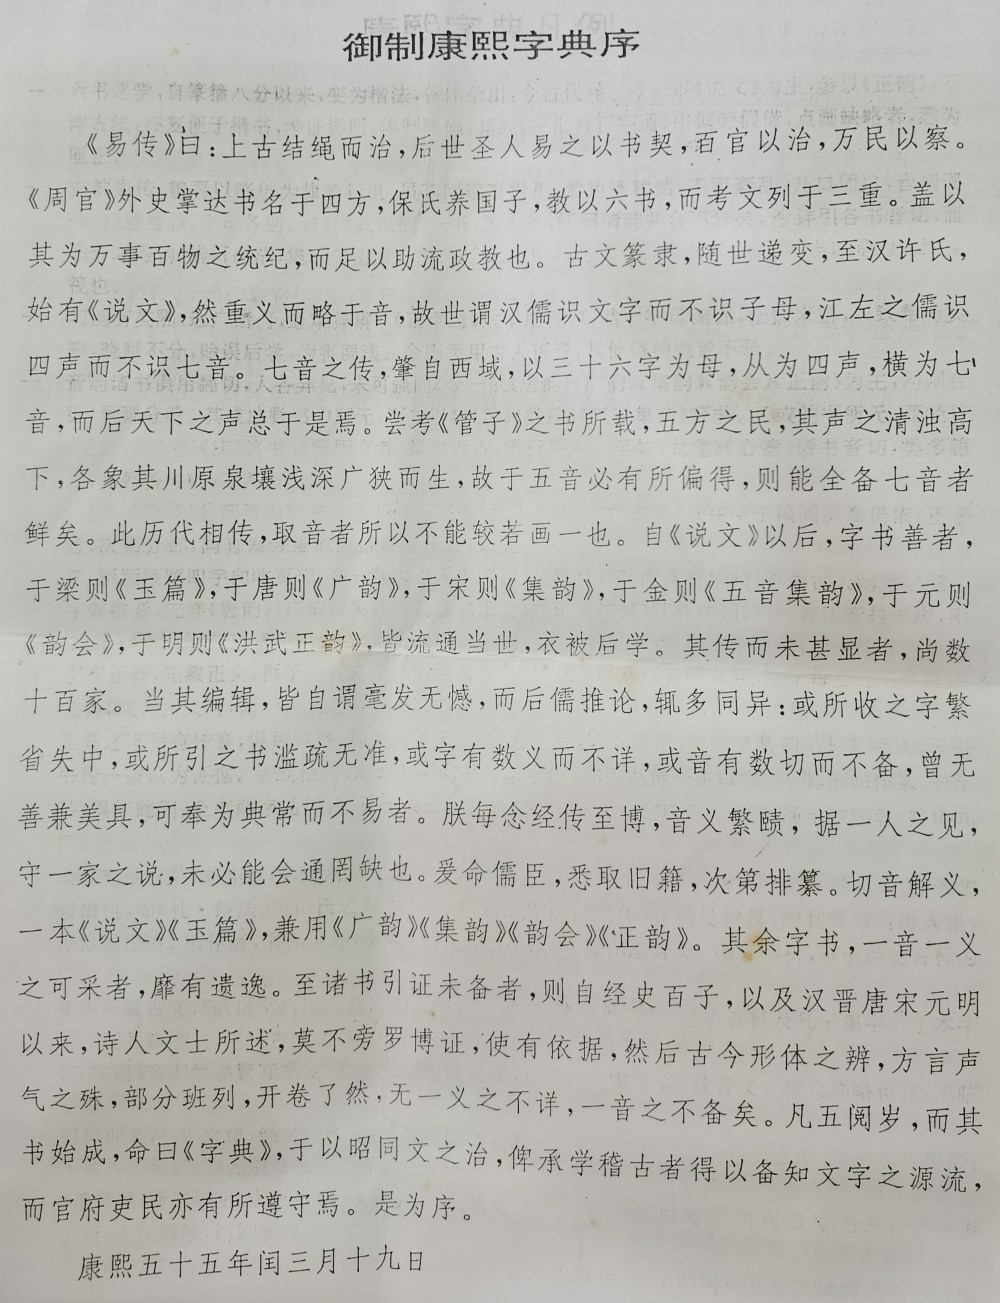 御制康熙字典序
《易传》曰：上古结绳而治，后世圣人易之以书契，百官以治，万民以察。
《周官》外史掌达书名于四方，保氏养国子，教以六书，而考文列于三重。盖以
其为万事百物之统纪，而足以助流政教也。古文篆隶，随世递变，至汉许氏，
始有《说文》，然重义而略于音，故世谓汉儒识文字而不识子母，江左之儒识
四声而不识七音。七音之传，肇自西域，以三十六字为母，从为四声，横为七
音，而后天下之声总于是焉。尝考《管子》之书所载，五方之民，其声之清浊高
下，各象其川原泉壤浅深广狭而生，故于五音必有所偏得，则能全备七音者
鲜矣。此历代相传，取音者所以不能较若画一也。自《说文》以后，字书善者，
于梁则《玉篇》，于唐则《广韵》，于宋则《集韵》，于金则《五音集韵》，于元则
《韵会》，于明则《洪武正韵》，皆流通当世，衣被后学。其传而未甚显者，尚数
十百家。当其编辑，皆自谓毫发无憾，而后儒推论，辄多同异：或所收之字繁
省失中，或所引之书滥疏无准，或字有数义而不详，或音有数切而不备，曾无
善兼美具，可奉为典常而不易者。朕每念经传至博，音义繁赜，据一人之见，
守一家之说，未必能会通罔缺也。爰命儒臣，悉取旧籍，次第排纂。切音解义，
一本《说文》《玉篇》，兼用《广韵》《集韵》《韵会》《正韵》。其余字书，一音一义
之可采者，靡有遗逸。至诸书引证未备者，则自经史百子，以及汉晋唐宋元明
以来，诗人文士所述，莫不旁罗博证，使有依据，然后古今形体之辨，方言声
气之殊，部分班列，开卷了然，无一义之不详，一音之不备矣。凡五阅岁，而其
书始成，命曰《字典》，于以昭同文之治，俾承学稽古者得以备知文字之源流，
而官府吏民亦有所遵守焉。是为序。
康熙五十五年闰三月十九日